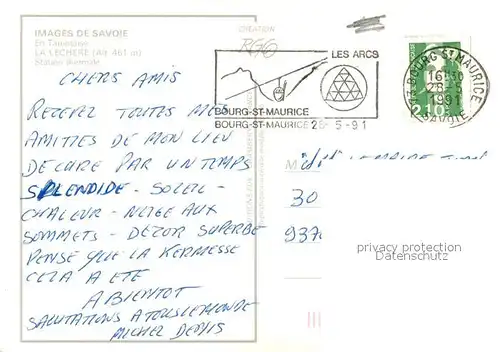 IMAGES DE SAVOIE
En Tarentaise
LA LECHERE (Alt. 461 m)
Station thermale
CRÉATION
CHERS AMIS
RECEVEZ TOUTES MES
AMITIES DE MON LIEU
DE CURE PAR UN TEMPS
SPLENDIDE - SOLEIL -
CHALEUR - NEIGE AUX
SOMMETS - DECOR SUPERBE
PENSE QUE LA KERMESSE
CELA A ETE
A BIENTOT
SALUTATIONS A TOUS LE MONDE
MICHEL
LES ARCS
BOURG-ST-MAURICE
BOURG-ST-MAURICE 28-5-91
73 BOURG ST MAURICE
16H30
28-5
1991
SAVOIE
2,10
M
30
937
privacy protection
Datenschutz